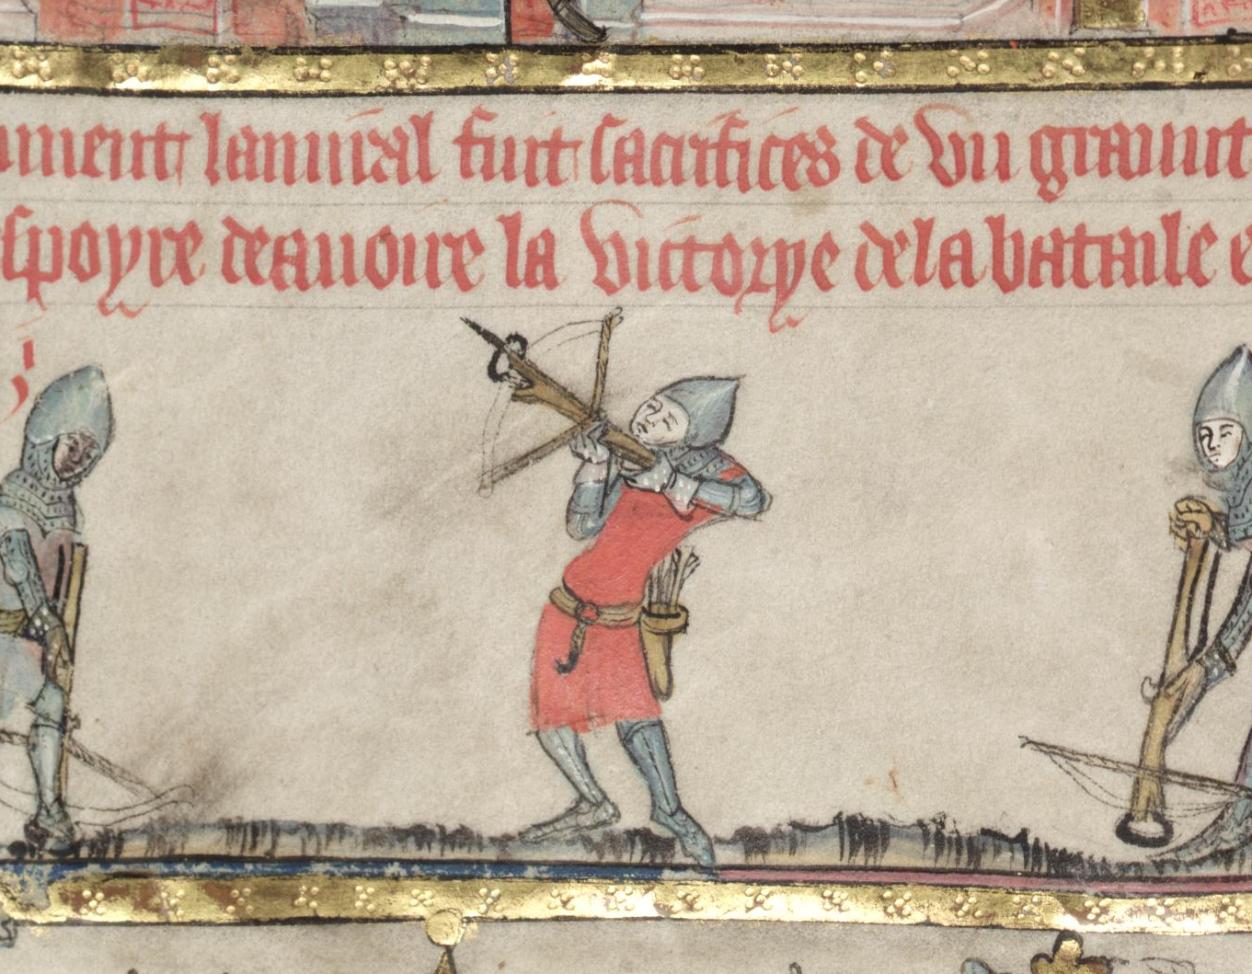 ment lamiral fuit sacrifices de vii graunt
spoyre deauoire la victorye dela bataile e